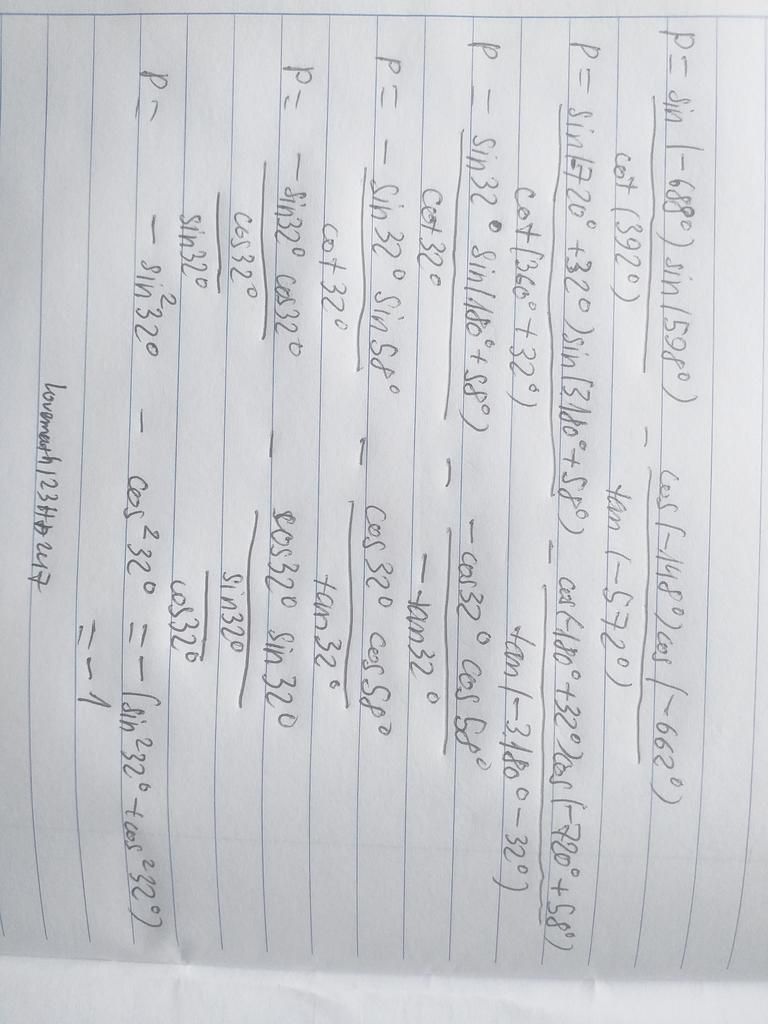 P = sin(-688°) sin(598°) / cot(392°) - cos(-148°) cos(-662°) / tan(-572°)
P = sin(-720° + 32°) sin(3.180° + 58°) / cot(360° + 32°) - cos(-180° + 32°) cos(-720° + 58°) / tan(-3.180° - 32°)
P = sin32° sin(180° + 58°) / cot32° - -cos32° cos58° / -tan32°
P = - sin32° sin58° / cot32° - cos32° cos58° / tan32°
P = -sin32° cos32° / cos32° / sin32° - cos32° sin32° / sin32° / cos32°
P = - sin²32° - cos²32° = -(sin²32° + cos²32°)
= -1